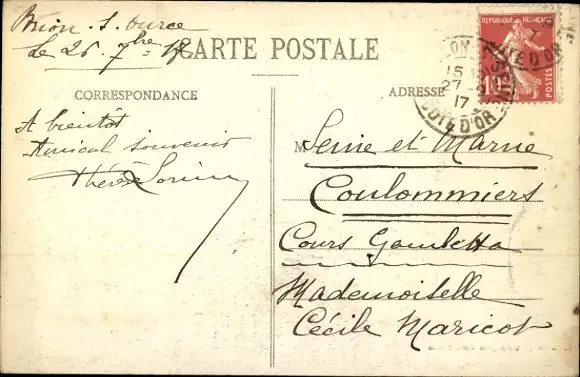 Brion. s. Ource
le 26. 7bre 17
CARTE POSTALE
CORRESPONDANCE
ADRESSE
RÉPUBLIQUE FRANÇAISE
10
POSTES
15
27 - 9
17
COTE D'OR
COTE D'OR
A bientôt
Amical souvenir
Thérèse
M
Seine et Marne
Coulommiers
Cours Gambetta
Mademoiselle
Cécile Maricot